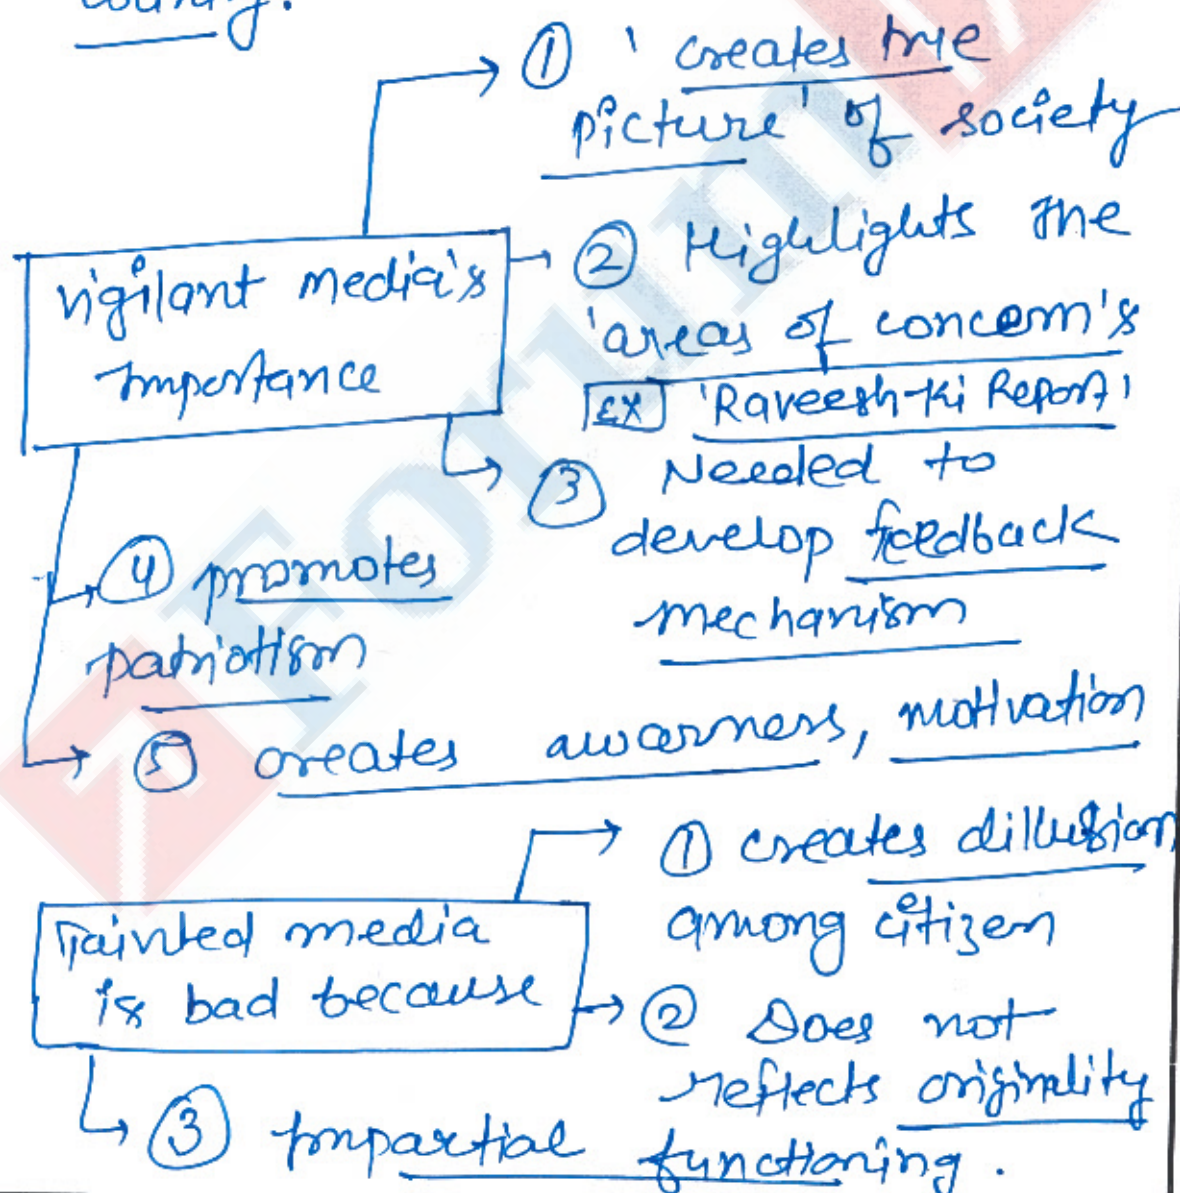 country.
① 'creates true
picture' of society
vigilant media's
Importance
② Highlights the
'areas of concern's
EX 'Raveesh-Ki Report'
③ Needed to
develop feedback
mechanism
④ promotes
patriotism
⑤ creates awarness, motivation
Tainted media
is bad because
① creates dillusion
among citizen
② Does not
reflects originality
③ Impartial functioning.
Forum